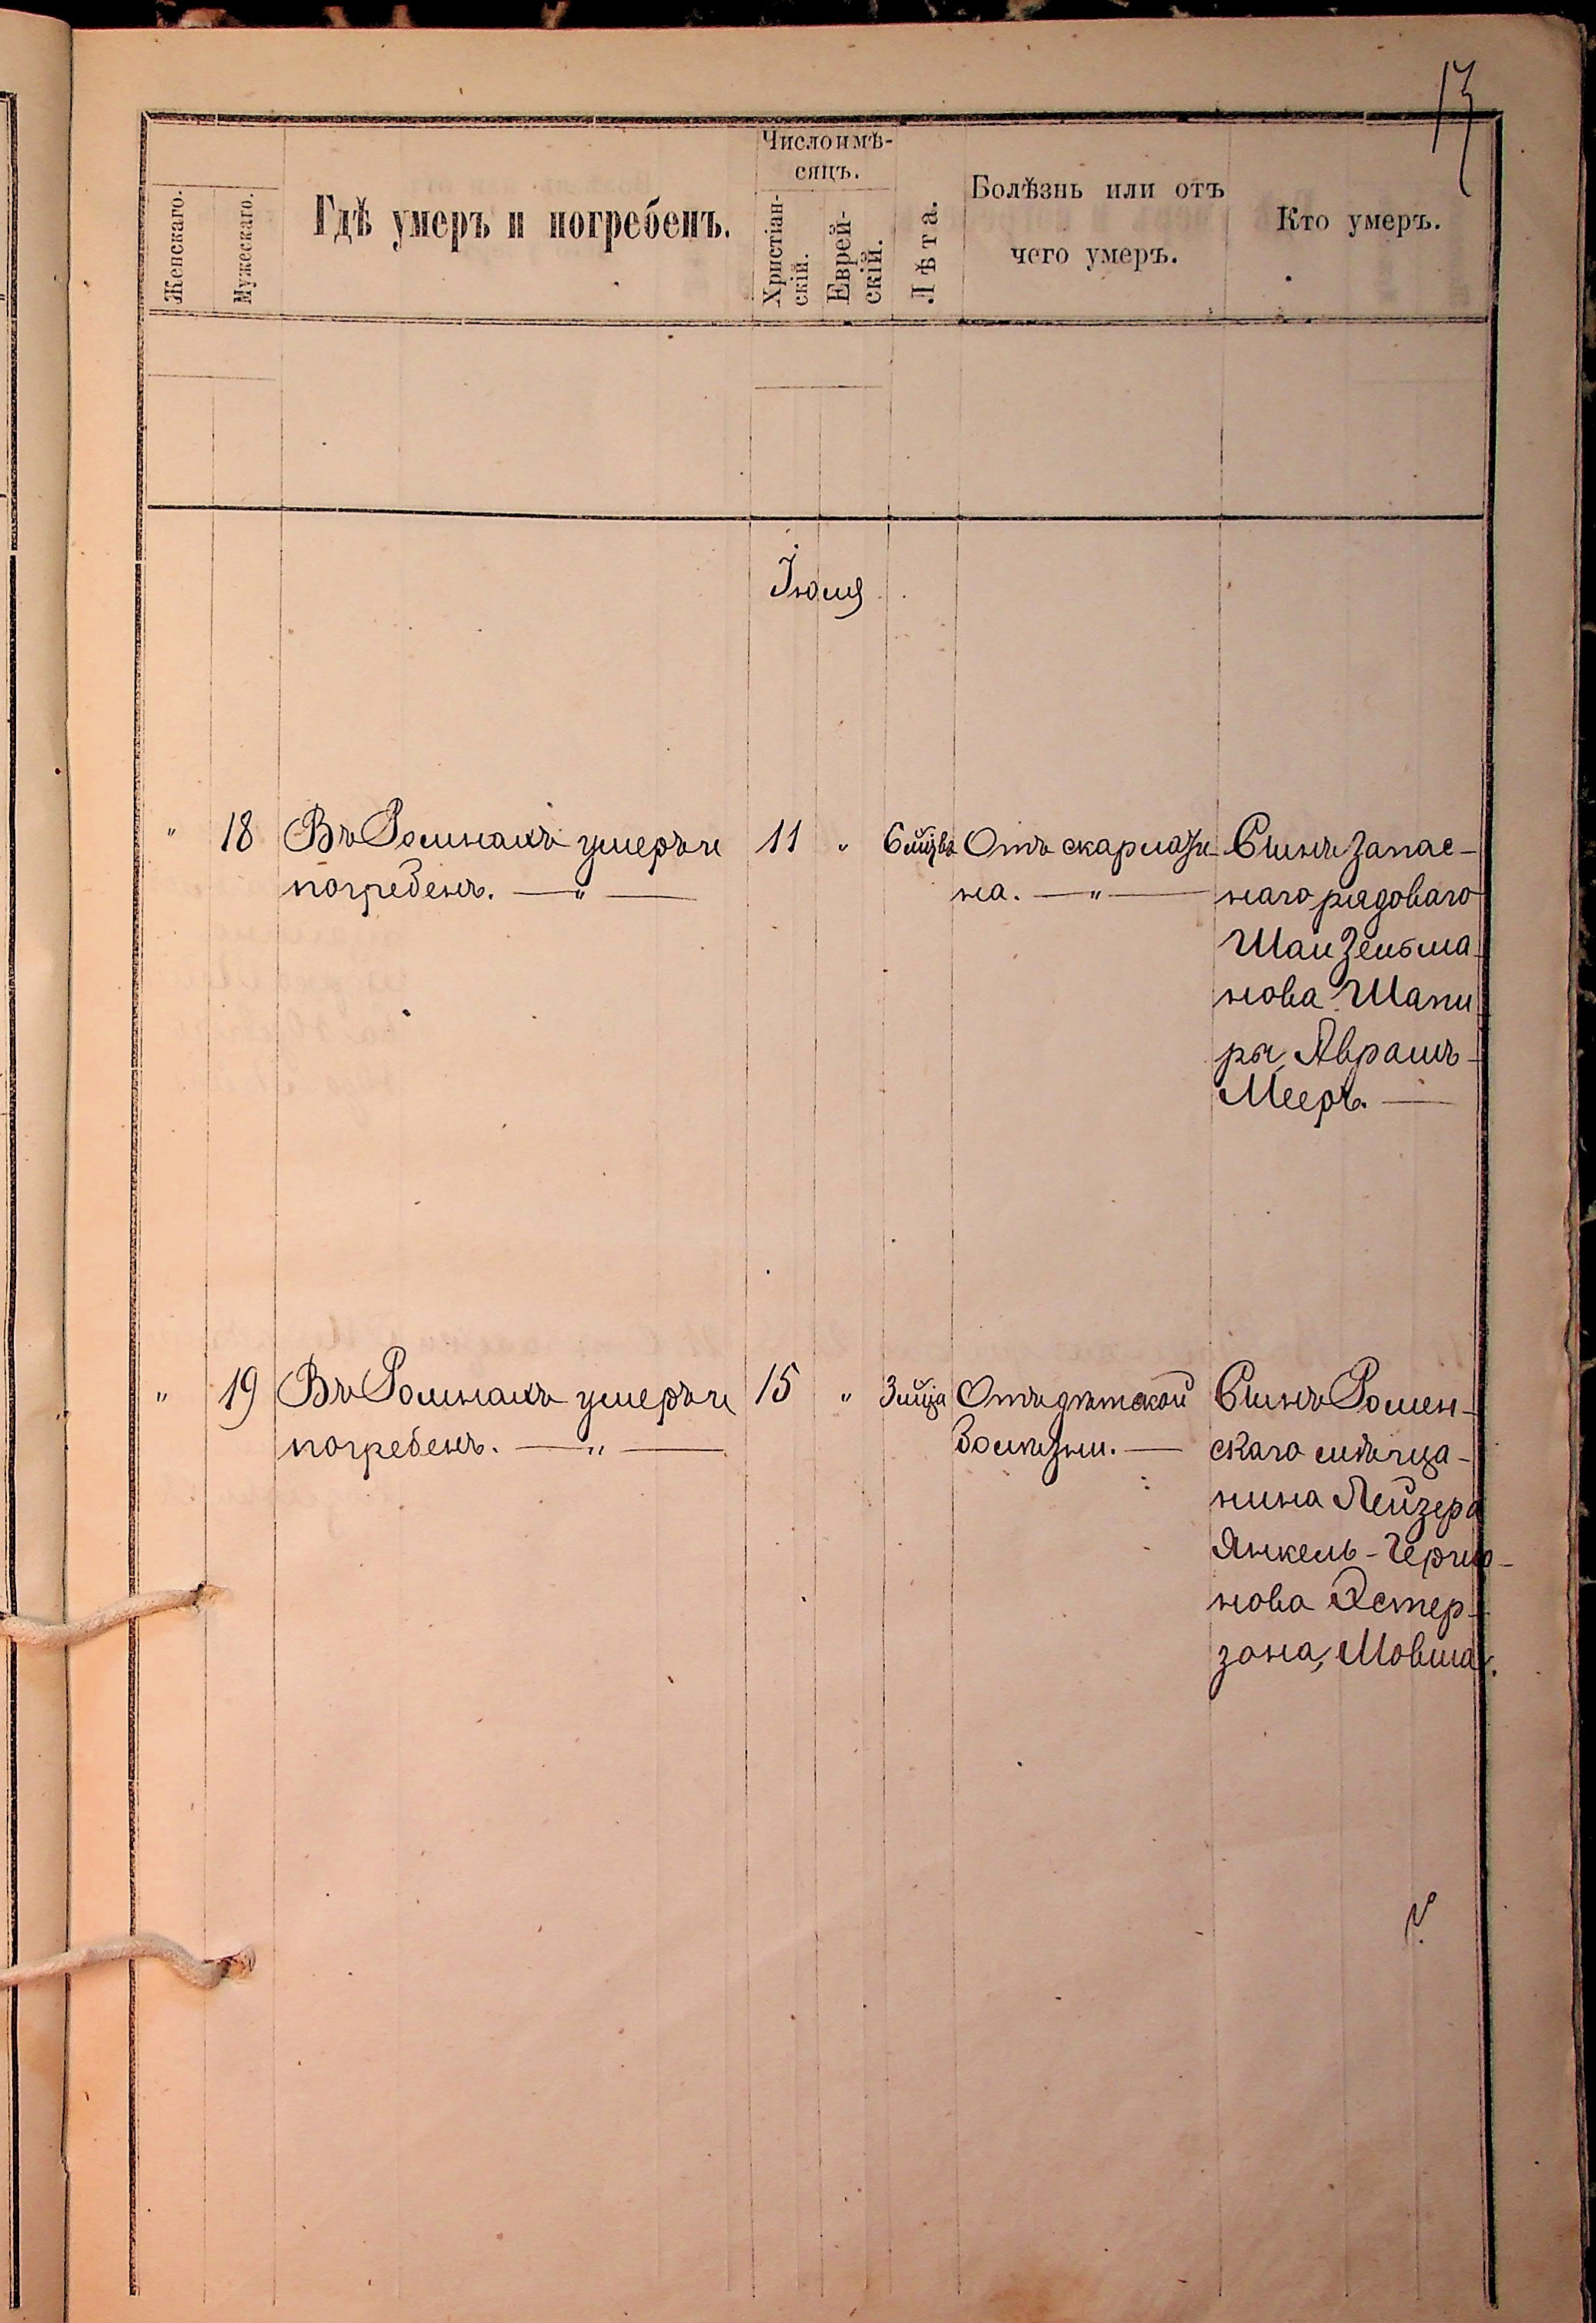 13
Женскаго. Мужескаго. Гдѣ умеръ и погребенъ. Число и мѣ-
сяцъ.
Христіан-
скій.
Еврей-
скій.
Лѣта.
Болѣзнь или отъ
чего умеръ.
Кто умеръ.
Іюля
" 18 Въ Ромнахъ умеръ и
погребенъ. — " —
11 " 6 мцвъ
Отъ скарлати-
на. — " —
Сынъ запас-
наго рядоваго
Шаи Зельма-
нова Шапи-
ры, Абрамъ-
Мееръ. —
" 19 Въ Ромнахъ умеръ и
погребенъ. — " —
15 " 3 мца
Отъ дѣтской
болѣзни. —
Сынъ Ромен-
скаго мѣща-
нина Лейзера
Янкель-
нова Эстер-
зона, Мовша.